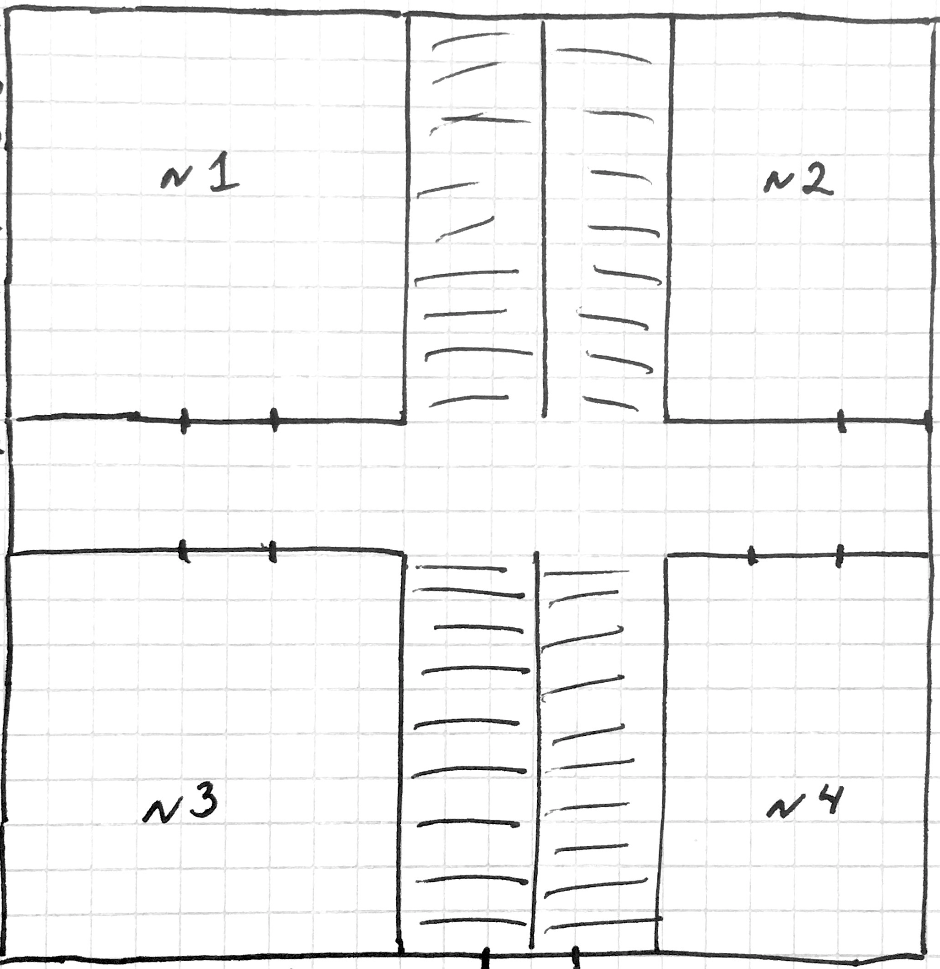 N1
N2
N3
N4